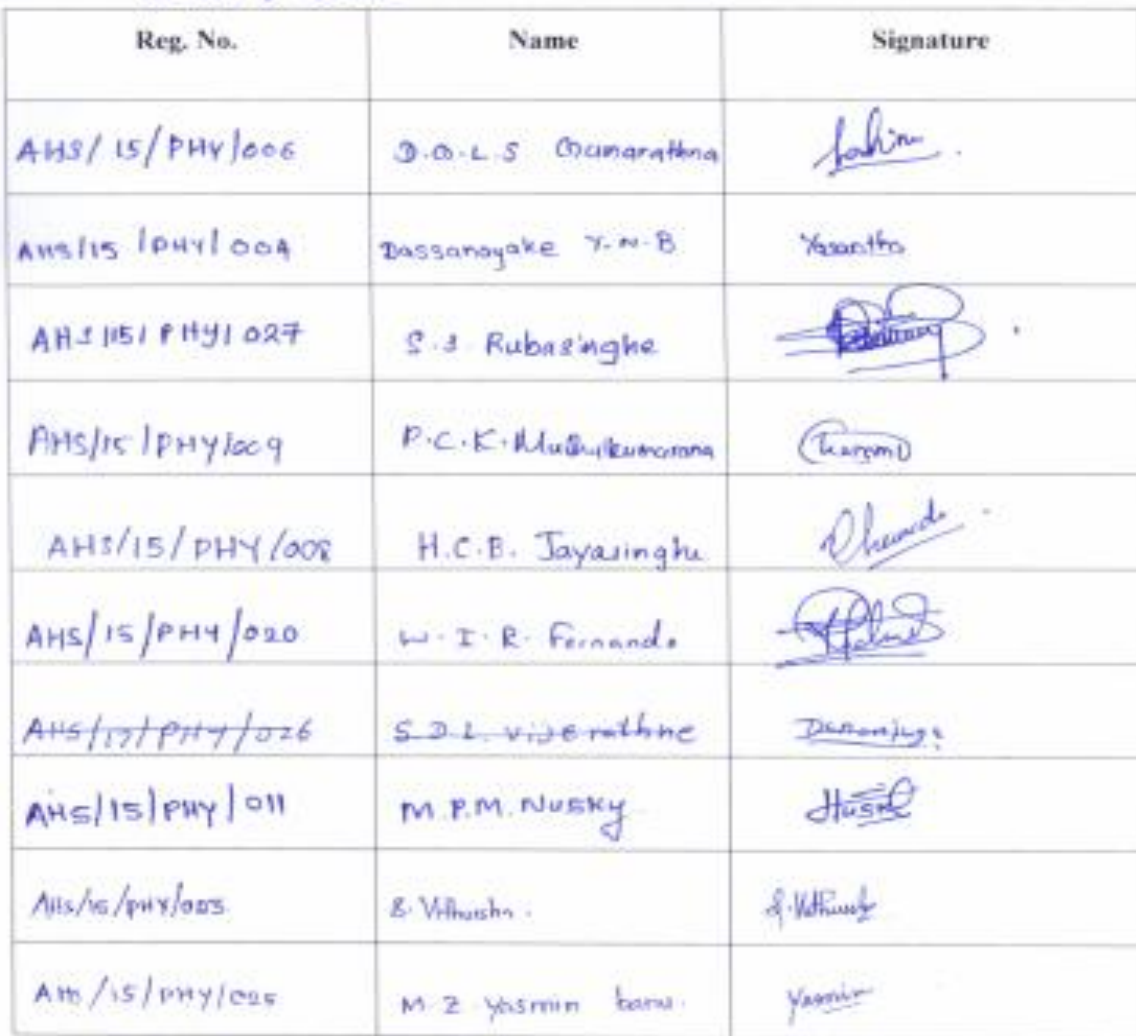 Reg. No. Name Signature
AHS/15/PHY/006 D.O.L.S Gunarathna
AHS/15/PHY/004 Dassanayake Y.N.B Yasantha
AHS/15/PHY/027 S.S. Rubasinghe
AHS/15/PHY/009 P.C.K.
AHS/15/PHY/008 H.C.B. Jayasinghe
AHS/15/PHY/020 W.I.R. Fernando
AHS/17/PHY/026 S.D.L. vijerathne
AHS/15/PHY/011 M.P.M. Nusky
AHS/15/PHY/005 S. Vithursha.
AHS/15/PHY/025 M.Z. Yasmin banu. Yasmin